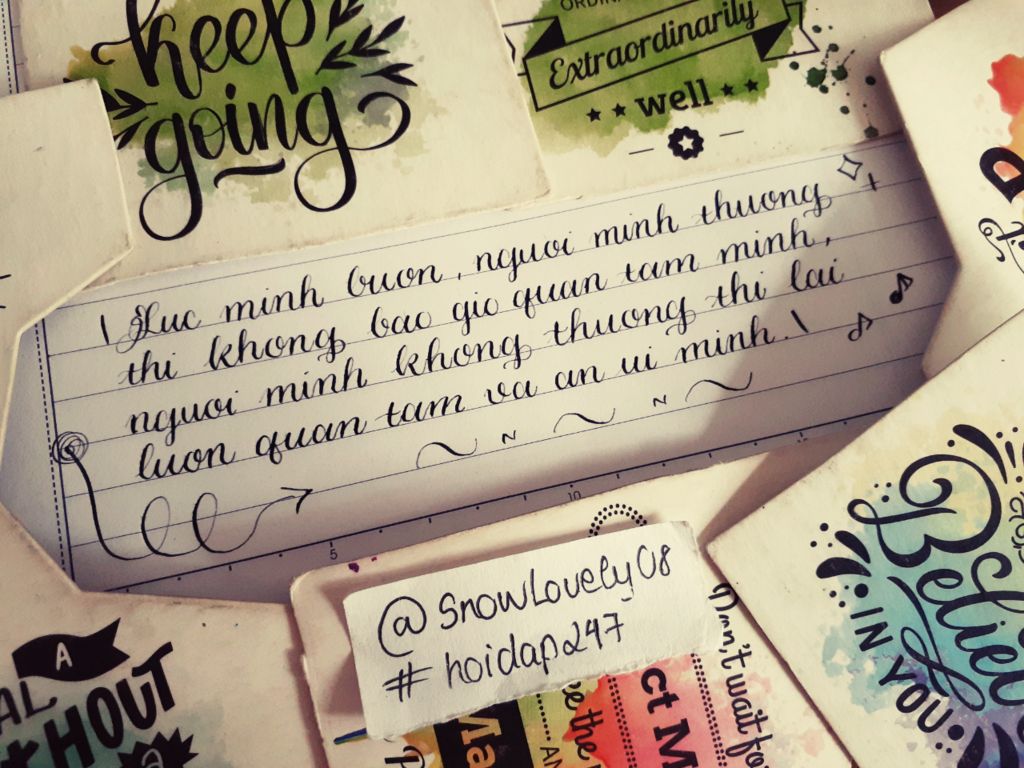 keep
going
Extraordinarily
well
\ Luc minh buon, nguoi minh thuong
thi khong bao gio quan tam minh,
nguoi minh khong thuong thi lai
luon quan tam va an ui minh. \
5
10
@SnowLovely08
#hoidap247
A
Believe
IN YOU